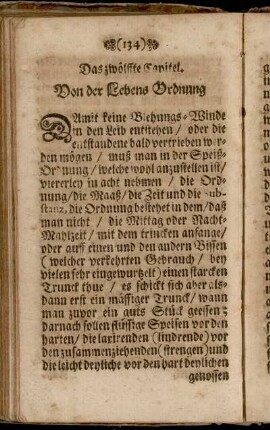 (134)
Das zwölffte Capitel.
Von der Lebens Ordnung
DAmit keine Blehungs-Winde
in den Leib entstehen / oder die
entstandene bald vertrieben wer-
den mögen / muß man in der Speiß-
Ordnung / welche wohl anzustellen ist/
viererley in acht nehmen / die Ord-
nung/die Maaß/die Zeit und die Sub-
stanz, die Ordnung bestehet in dem/daß
man nicht / die Mittag oder Nacht-
Mahlzeit / mit dem trincken anfange/
oder auff einen und den andern Bissen
(welcher verkehrten Gebrauch / bey
vielen sehr eingewurzelt) einen starcken
Trunck thue / es schickt sich aber als-
dann erst ein mässiger Trunck/ wann
man zuvor ein guts Stück geessen;
darnach sollen flüssige Speisen vor den
harten/die laxirenden (lindrende) vor
den zusammenziehenden (strengen) und
die leicht deyliche vor den hart deylichen
genossen